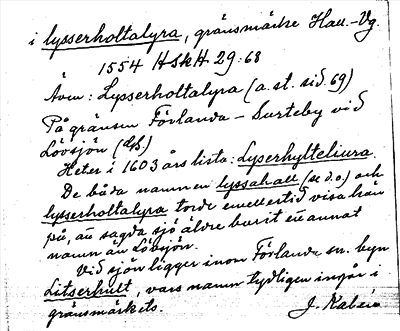 i lysserholtalyra, gränsmärke Hall.-Vg.
1554 HSkH 29:68
Även: Lysserholtalyra (a. st. sid. 69)
På gränsen Förlanda - Surteby vid
Lövsjön (Gs.)
Heter i 1603 års lista: Lyserhylteliura.
De båda namnen lyssahall (se d.o.) och
lysserholtalyra torde emellertid visa hän
på, att sagda sjö äldre burit en annat
namn än Lövsjön.
Vid sjön ligger inom Förlanda sn. byn
Litserhult, vars namn tydligen ingår i
gränsmärkets.
J. Kalén